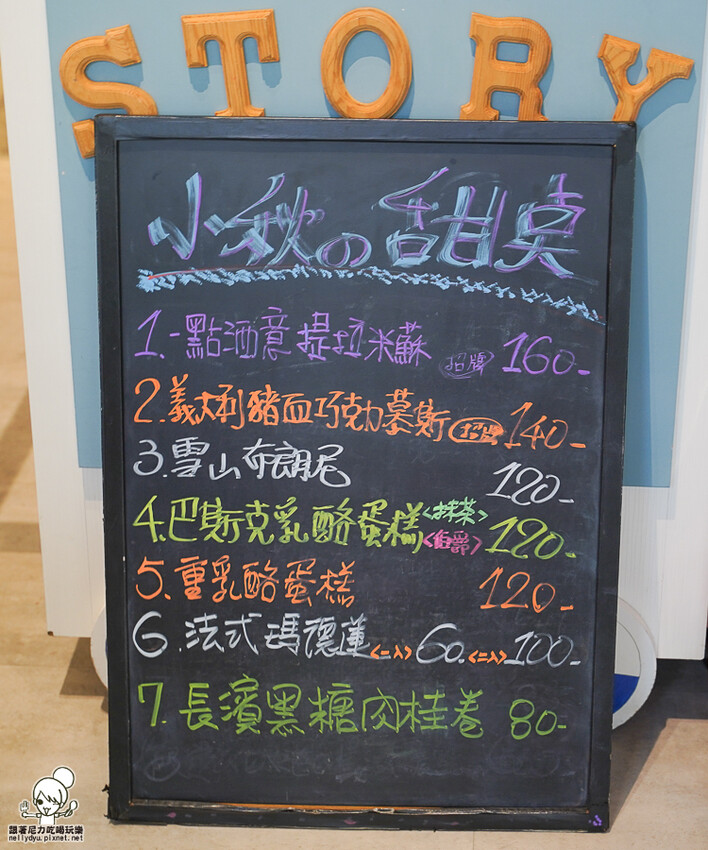 STORY
小秋の甜奌
1.一點酒意提拉米蘇 招牌 160-
2.義大利豬血巧克力慕斯 招牌 140-
3.雪山布朗尼 120-
4.巴斯克乳酪蛋糕<抹茶><伯爵> 120-
5.重乳酪蛋糕 120-
6.法式瑪德蓮<一入>60.<二入>100-
7.長濱黑糖肉桂卷 80-
跟著尼力吃喝玩樂
nellydyu.pixnet.net